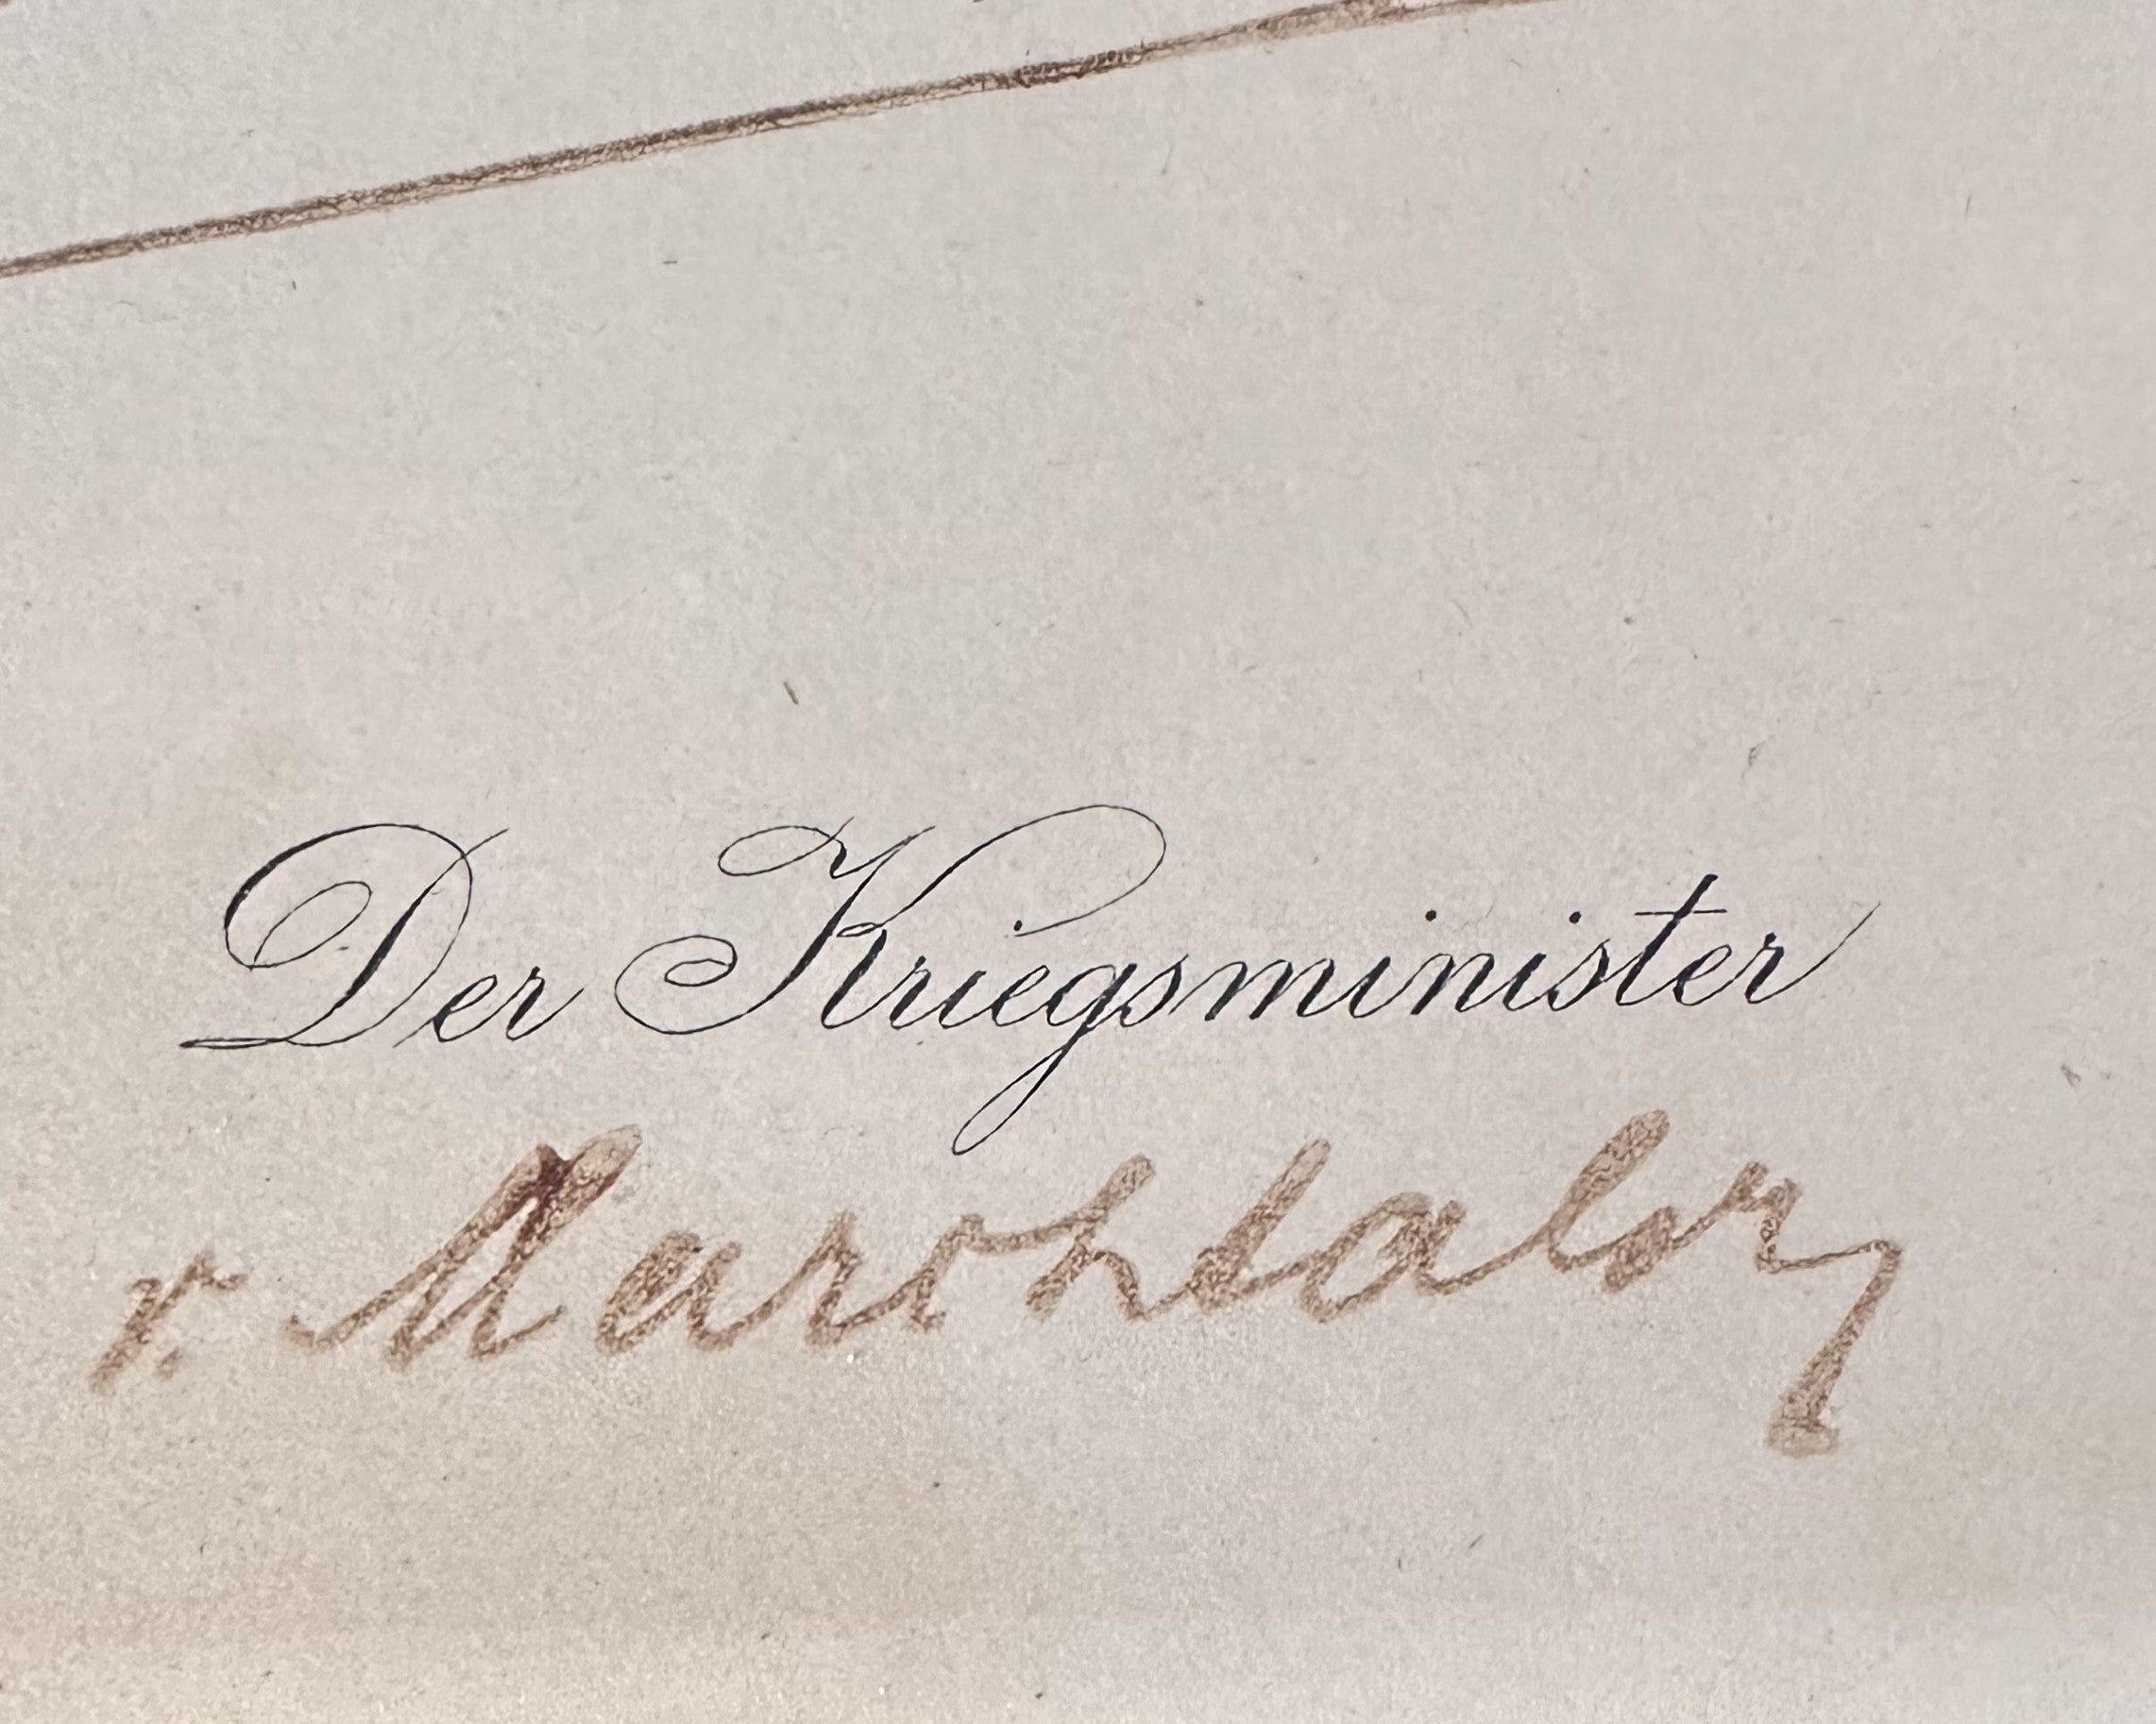 Der Kriegsminister
v. Marchtaler